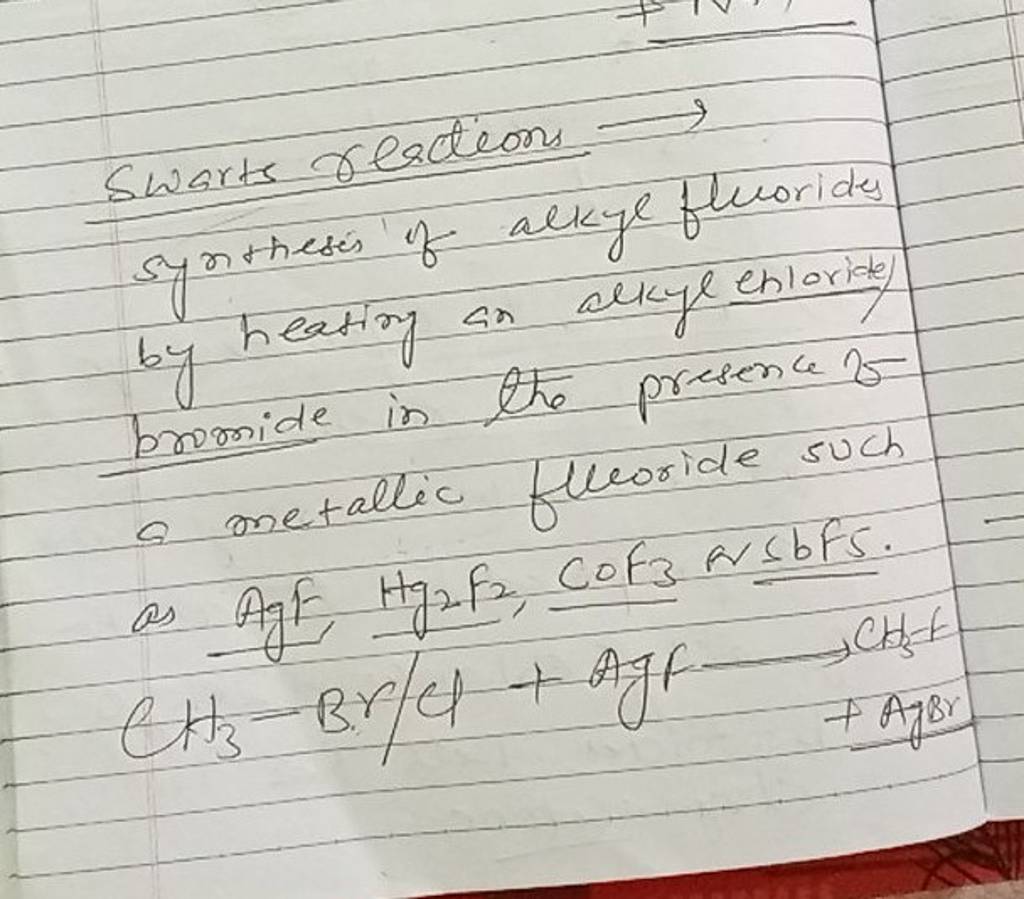 Swarts reactions →
synthesis of alkyl fluorides
by heating an alkyl chloride/
bromide in the presence of
a metallic fluoride such
as AgF, Hg2F2, COF3 or SbF5.
CH3-Br/Cl + AgF → CH3-F
+ AgBr